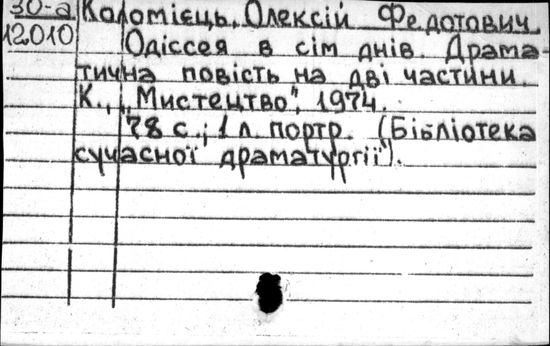 30-а
12010
Коломієць, Олексій Федотович.
Одіссея в сім днів. Драма-
тична повість на дві частини.
К., „Мистецтво", 1974.
78 с.; 1 л. портр. (Бібліотека
сучасної драматургії).